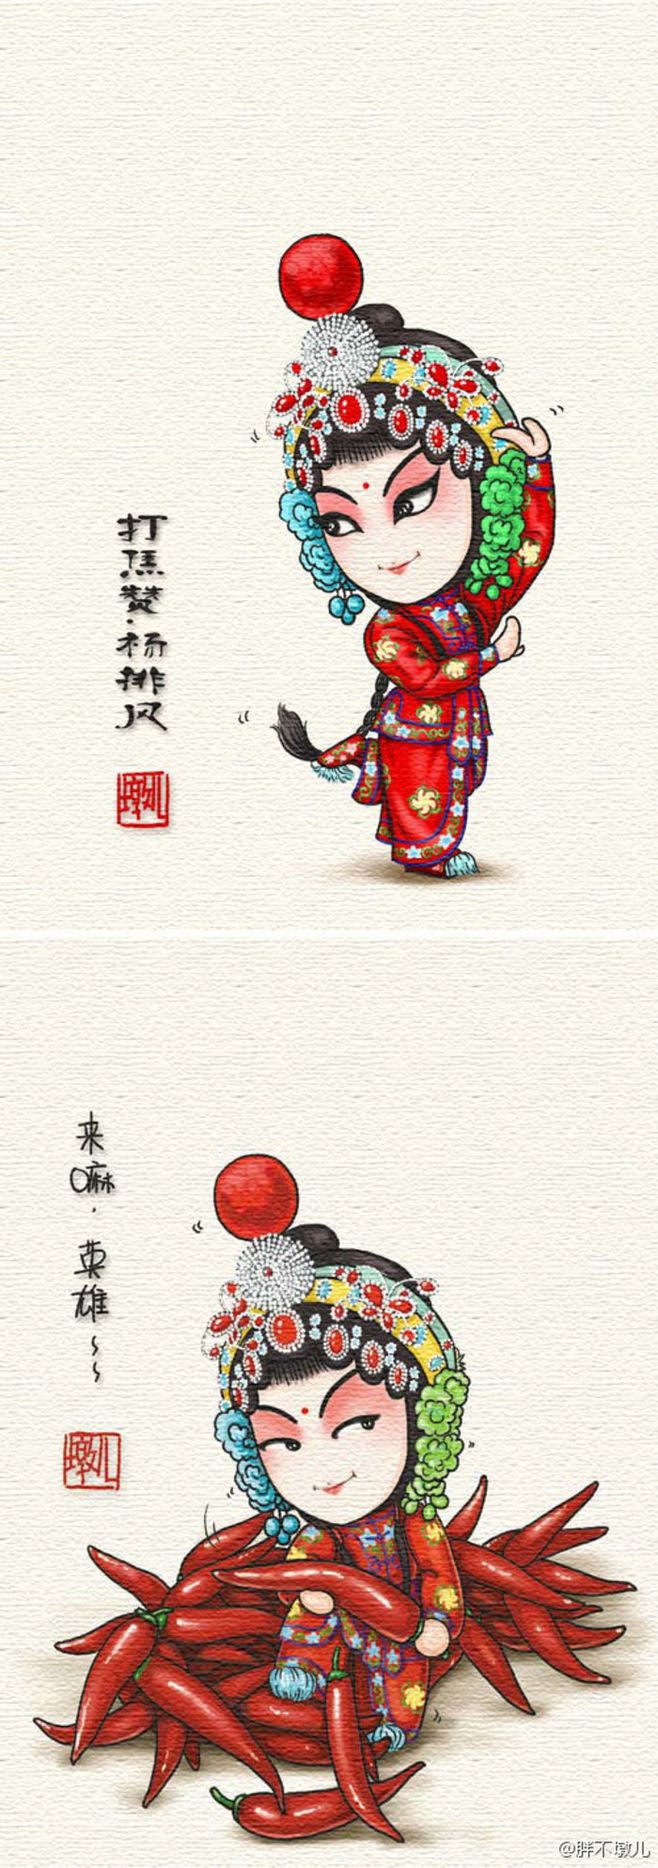 打焦赞·杨排风
墩儿
来嘛，英雄~~
墩儿
@胖不墩儿